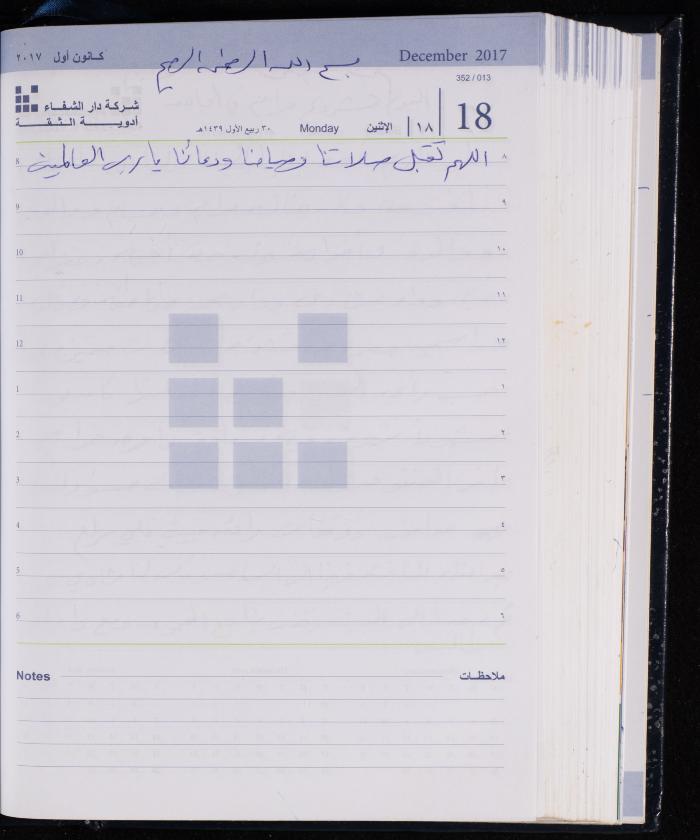 كانون أول ٢٠١٧
بسم الله الرحمن الرحيم
December 2017
352 / 013
شركة دار الشفاء
أدوية الثقة
٣٠ ربيع الأول ١٤٣٩هـ Monday الإثنين ١٨ 18
8 اللهم تقبل صلاتنا وصيامنا ودعائنا يارب العالمين ٨
9 ٩
10 ١٠
11 ١١
12 ١٢
1 ١
2 ٢
3 ٣
4 ٤
5 ٥
6 ٦
Notes ملاحظات